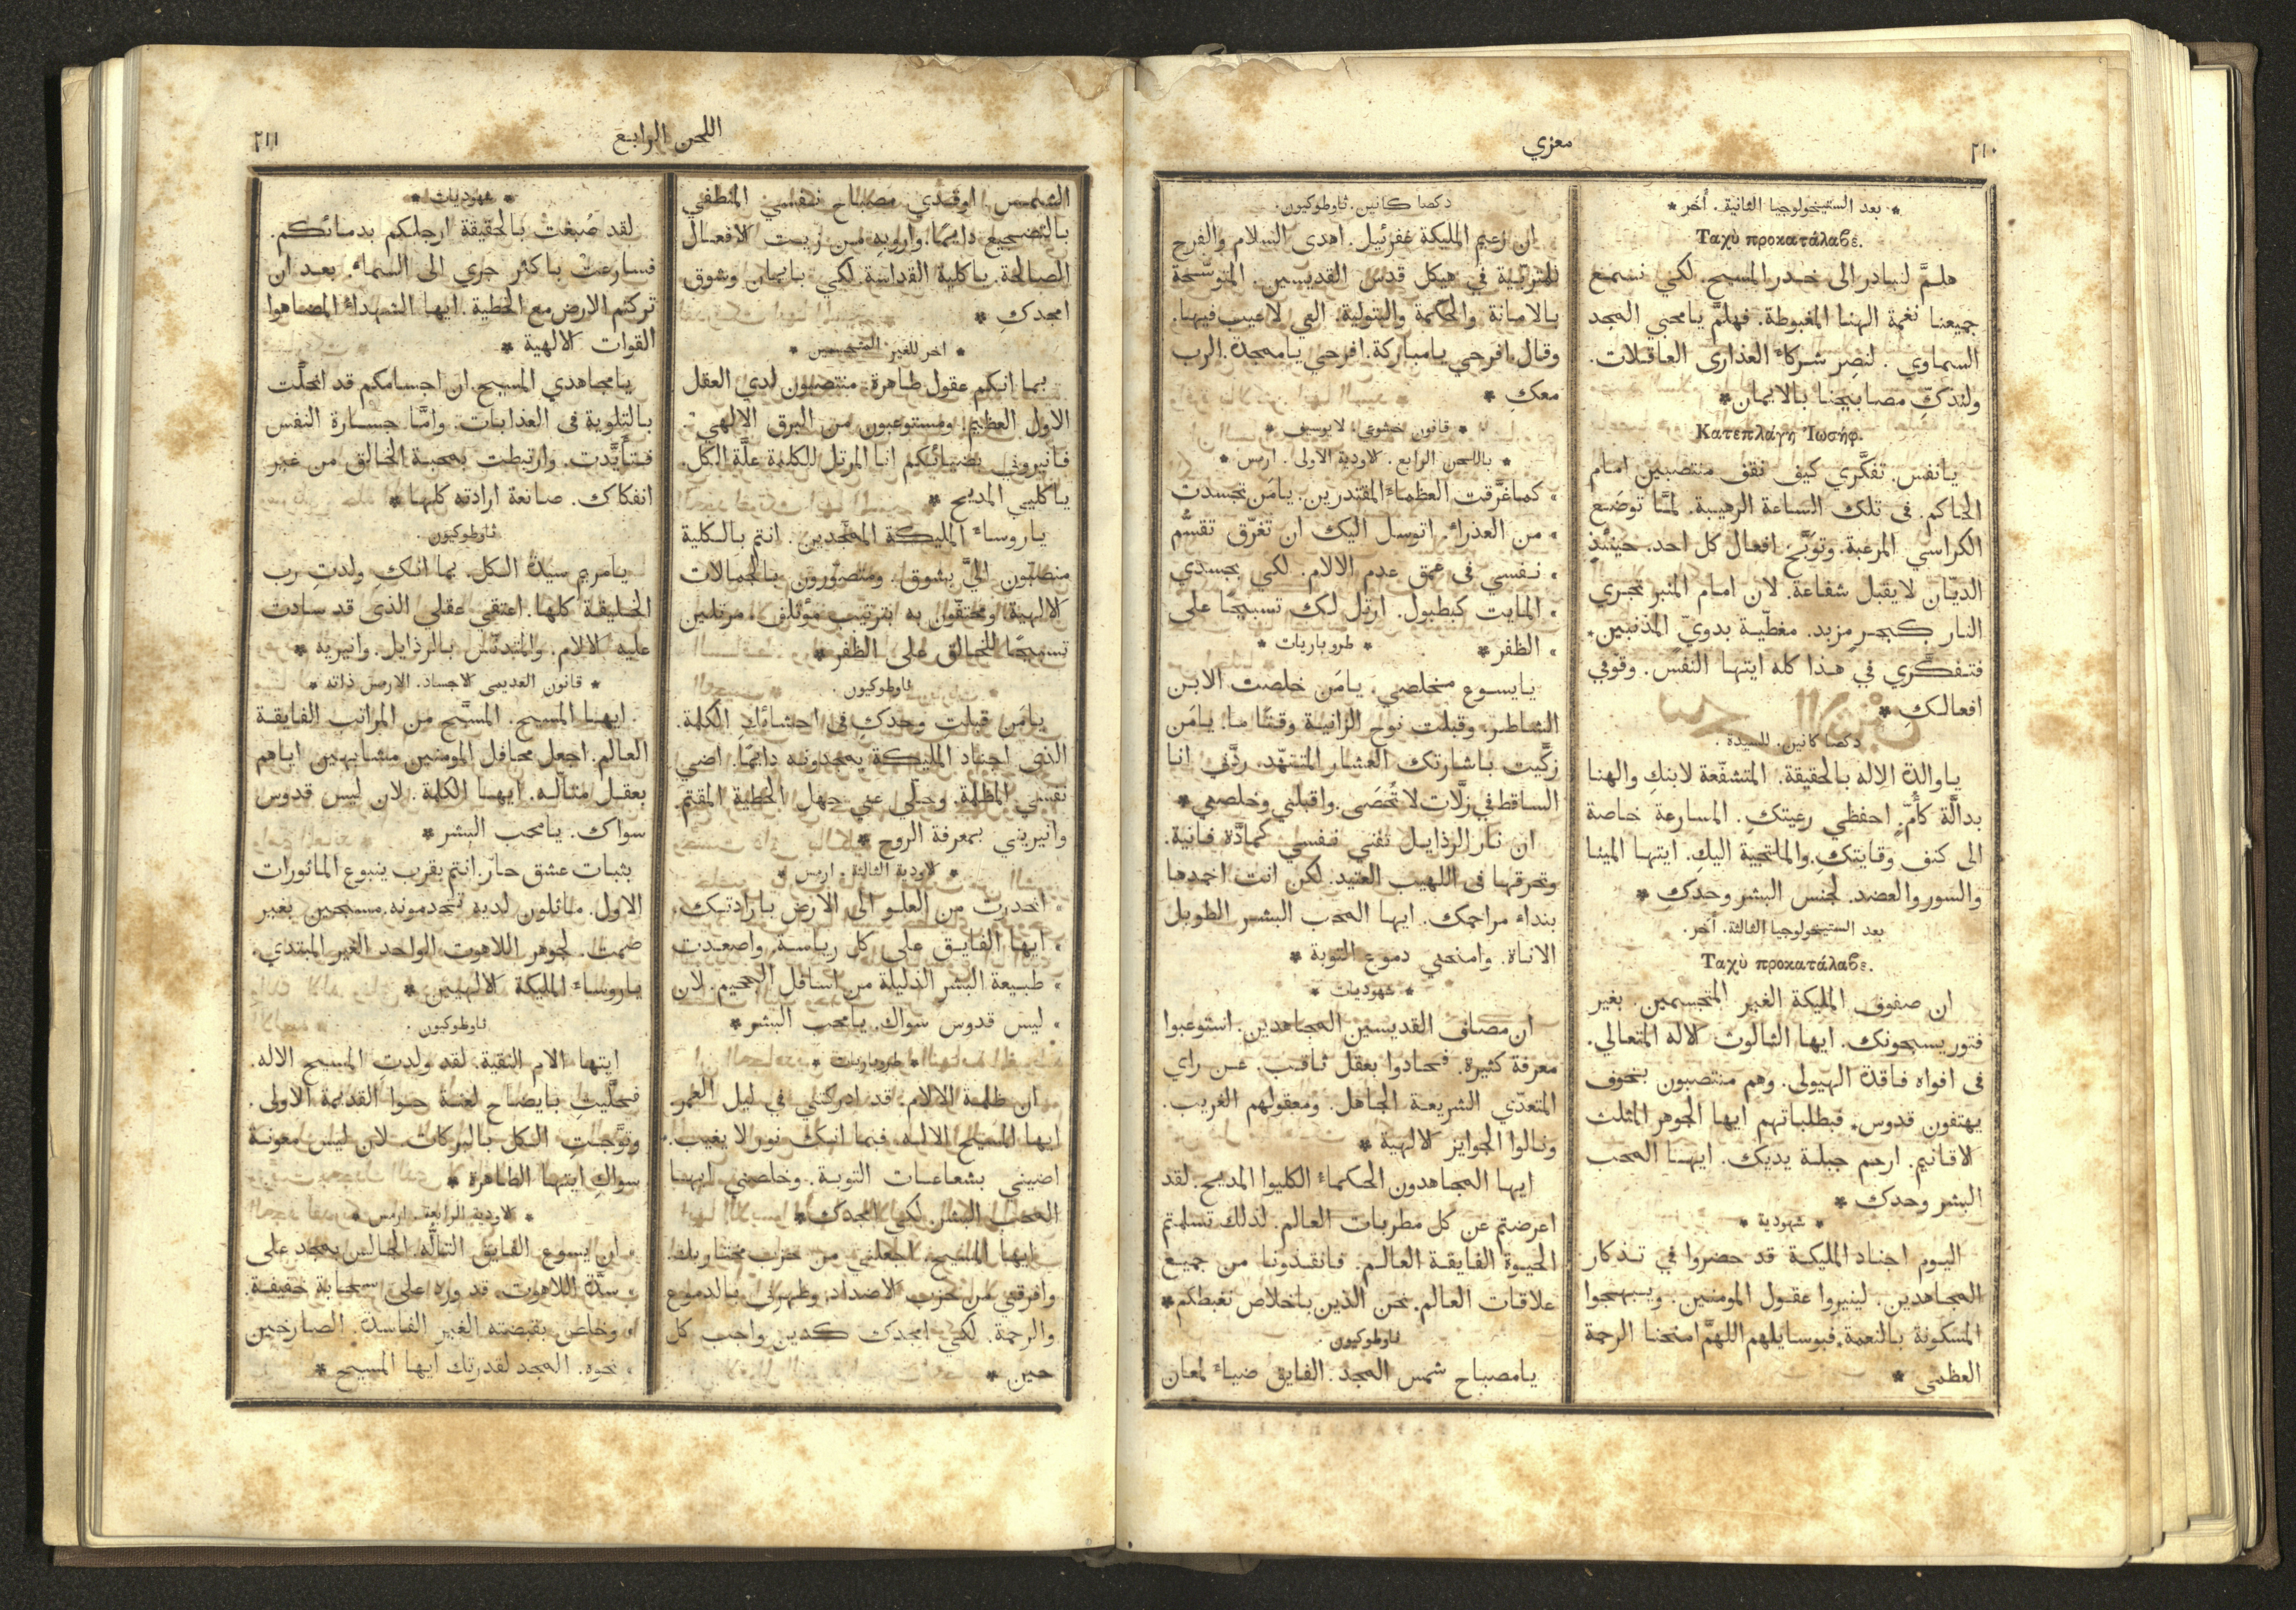 ٢١٠
معزي
* بعد الستيخولوجيا الثانية. أُخَر *
Ταχὺ προκατάλαβε.
هلمَّ لنبادر الى خدر المسيح. لكي نسمع
جميعنا نغمة الهنا المغبوطة. فهلمَّ يا محبي المجد
السماوي. لنصِر شركاءَ العذارى العاقلات.
ولتدكّ مصابيحنا بالايمان *
Κατεπλάγη Ἰωσήφ.
يانفس. تفكَّري كيف نقف منتصبين امام
الحاكم. في تلك الساعة الرهيبة. لمَّا توضَع
الكراسي المرعبة. وتوَبَّخ افعال كل احد. حينئذٍ
الديّان لايقبل شفاعة. لان امام المنبر تجري
النار كبحرٍ مزبد. مغطّية بدويّ المذنبين.
فتفكَّري في هذا كله ايتها النفس. وقوفي
افعالكِ *
دكصا كانين. للسيدة.
ياوالدة الاِله بالحقيقة. المتشفّعة لابنكِ والهنا
بدالَّة كأُمّ. احفظي رعيتكِ. المسارعة خاصة
الى كنف وقايتكِ. والملتجية اليكِ. ايتها المينا
والسور والعضد. لجنس البشر وحدكِ *
بعد الستيخولوجيا الثالثة. أُخر.
Ταχὺ προκατάλαβε.
ان صفوف المليكة الغير المتجسمين. بغير
فتور يسبحونك. ايها الثالوث الاله المتعالي.
في افواه فاقدة الهيولى. وهم منتصبون بخوف
يهتفون قدوس. فبطلباتهم ايها الجوهر المثلث
الاقانيم. ارحم جبلة يديك. ايها المحب
البشر وحدك *
* شهودية *
اليوم اجناد المليكة قد حضروا في تذكار
المجاهدين. لينيروا عقول المومنين. ويبهجوا
المسكونة بالنعمة. فبوسايلهم اللهمَّ امنحنا الرحمة
العظمى *
دكصا كانين. ثاوطوكيون.
ان زعيم المليكة غفرئيل. اهدى السلام والفرح
للمتربّية في هيكل قدس القديسين. المتوشّحة
بالامانة والحكمة والبتولية. التي لاعيب فيها.
وقال. افرحي يامباركة. افرحي ياممجدة. الرب
معكِ *
* قانون خشوعي. لايوسيف *
* باللحن الرابع. الاودية الاولى. ارمس *
كما غرَّقت العظماءَ المقتدرين. يامَن تجسدت
من العذراءِ. اتوسل اليك ان تغرّق تقسُّم
نفسي في عمق عدم الالام. لكي بجسدي
المايت كبطبول. ارتل لك تسبيحًا على
الظفر * * طروباريات *
يايسوع مخلصي. يامَن خلصت الابن
الشاطر. وقبلت نوح الزانية وقتًا ما. يامَن
زكَّيت باشارتك العشار المتنهّد. ردَّني انا
الساقط في زلَّات لا تُحصَى. واقبلني وخلصني *
ان نار الرذايل تفني نفسي كمادَّة فانية.
وتحرقها في اللهيب العتيد. لكن انت اخمدها
بنداء مراحمك. ايها المحب البشر الطويل
الاناة. وامنحني دموع التوبة *
* شهوديات *
ان مصاف القديسين المجاهدين. استوعبوا
معرفة كثيرة. فحادوا بعقل ثاقب. عن راي
المتعدّي الشريعة الجاهل. ومعقولهم الغريب.
ونالوا الجوايز الالهية *
ايها المجاهدون الحكماءَ الكليوا المديح. لقد
اعرضتم عن كل مطربات العالم. لذلك تسلمتم
الحيوة الفايقة العالم. فانقذونا من جميع
علاقات العالم. نحن الذين باخلاص نغبطكم *
ثاوطوكيون.
يامصباح شمس المجد. الفايق ضياءَ لمعان
اللحن الرابع
٢١١
الشمس. اوقدي مصباح نفسي المنطفي
بالتضجيع دايمًا. وارويه من زيت الافعال
الصالحة. ياكلية القداسة. لكي بايمان وشوق
امجدكِ *
* اخر للغير المتجسمين *
بما انكم عقول طاهرة. منتصبون لدي العقل
الاول العظيم. ومستوعبون من البرق الالهي.
فانيروني بضيائكم انا المرتل للكلمة علَّة الكل.
ياكليي المديح *
ياروساءَ المليكة الممجّدين. انتم بالكلية
منصبّون اليَّ بشوق. ومتصوّرون بالجمالات
الالهية. ومحتفّون به بترتيب مؤتلف. مرتلين
تسبيحًا للخالق على الظفر *
ثاوطوكيون.
يامَن قبلتِ وحدكِ في احشائكِ الكلمة.
الذي اجناد المليكة يمجدونه دايمًا. اضي
نفسي المظلمة. وحلّي عني جهل الخطية المقتم.
وانيريني بمعرفة الروح *
* الاودية الثالثة. ارمس *
انحدرت من العلو الى الارض بارادتك.
ايها الفايق على كل رياسة. واصعدت
طبيعة البشر الذليلة من اسافل الجحيم. لان
ليس قدوس سواك. يامحب البشر *
* طروباريات *
ان ظلمة الالام. قد ادركتني في ليل العمر.
ايها المسيح الاله. فبما انك نور لا يغيب.
اضيني بشعاعات التوبة. وخلصني ايها
المحب البشر. لكي امجدك *
ايها المسيح. اجعلني من حزب مختاريك.
وافرقني من حزب الاضداد. وطهرني بالدموع
والرحمة. لكي امجدك كدين واجب كل
حين *
* شهوديات *
لقد صُبغت بالحقيقة ارجلكم بدمائكم.
فسارعت باكثر جري الى السماءِ. بعد ان
تركتم الارض مع الخطية. ايها الشهداءُ المضاهوا
القوات الالهية *
يامجاهدي المسيح. ان اجسامكم قد انحلَّت
بالتلوية في العذابات. وامَّا جسارة النفس
فتأيَّدت. وارتبطت بمحبة الخالق من غير
انفكاك. صانعة ارادته كلها *
ثاوطوكيون.
يامريم سيدة الكل. بما انكِ ولدتِ رب
الخليقة كلها. اعتقي عقلي الذي قد سادت
عليه الالام. والمتدنّس بالرذايل. وانيريه *
* قانون العديمي الاجساد. الارمس ذاته *
ايها المسيح. المسبَّح من المراتب الفايقة
العالم. اجعل محافل المومنين مشابهين اياهم
بعقل متألّه. ايها الكلمة. لان ليس قدوس
سواك. يامحب البشر *
بثبات عشق حارّ. انتم بقرب ينبوع الماثورات
الاول. ماثلون لديه تخدمونه. مسبحين بغير
صمت. لجوهر اللاهوت الواحد الغير المبتدي.
ياروساءَ المليكة الالهيين *
ثاوطوكيون.
ايتها الام النقية. لقد ولدتِ المسيح الاله.
فحلَّيتِ بايضاح لعنة حوا القديمة الاولى.
وتوَّجتِ الكل بالبركات. لان ليس معونة
سواكِ ايتها الطاهرة *
* الاودية الرابعة. ارمس *
ان يسوع الفايق التألُّه. الجالس بمجد على
سدّة اللاهوت. قد وره على سحابة خفيفة.
وخلص بقبضته الغير الفاسدة. الصارخين
نحوه. المجد لقدرتك ايها المسيح *